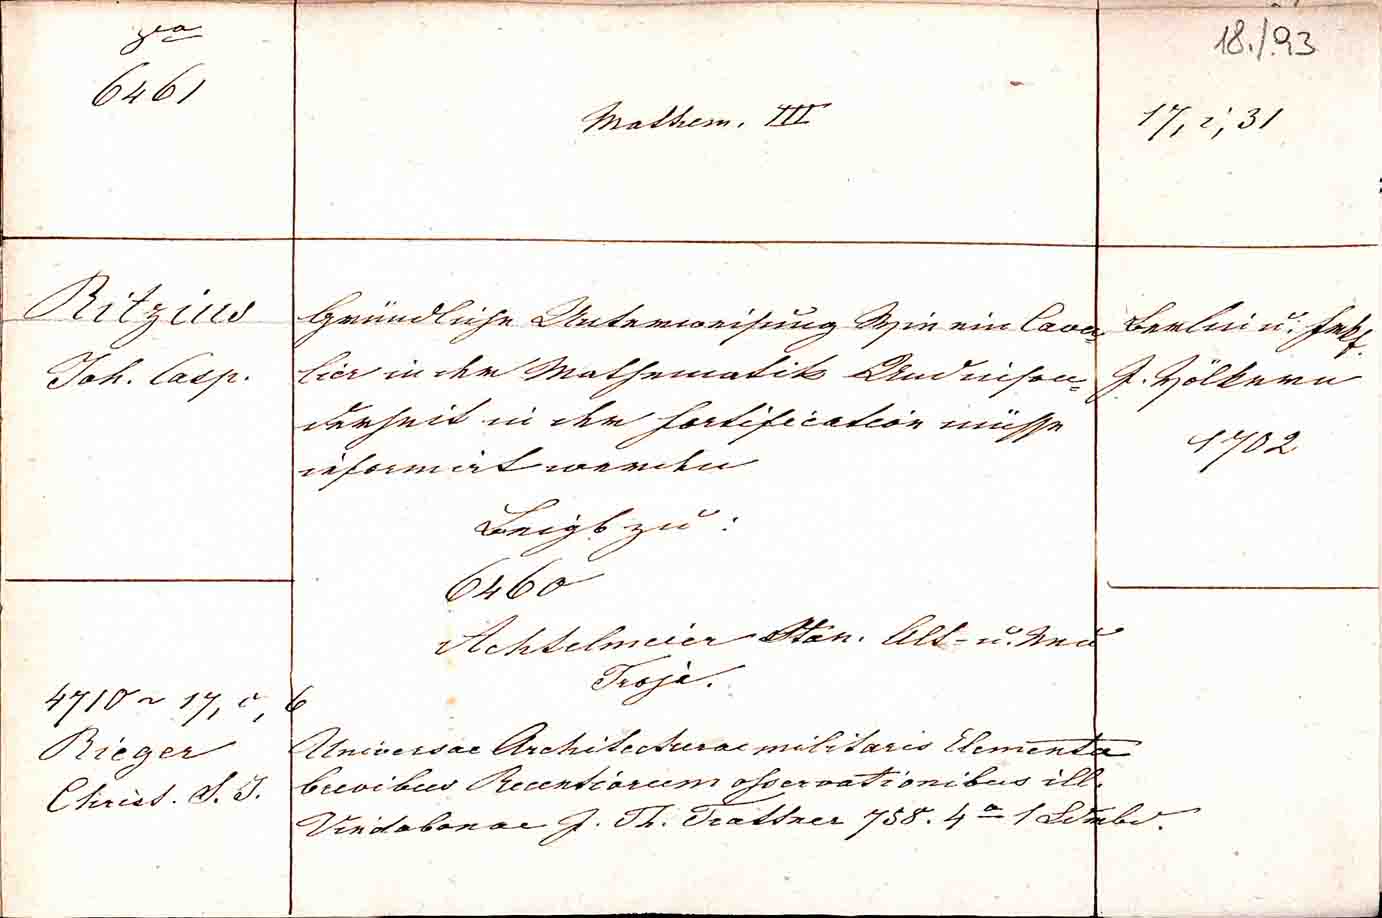 6461
Mathem. III
18./93
17, i, 31
Ritzius
Joh. Casp.
Gründliche Unterweisung Wie ein Cava=
lier in der Mathematik Und inson=
derheit in der Fortification müsse
informirt werden
Berlin u. Fkf.
J. Völkern
1702
Beigb zu:
6460
Achtelmeier Stan. Alt- u. Neu
Troja.
4710 ~ 17, c, 6
Rieger
Christ. S. J.
Universae Architecturae militaris Elementa
brevibus Recentiorum observationibus ill.
Vindobonae J. Th. Trattner 758. 4º 1